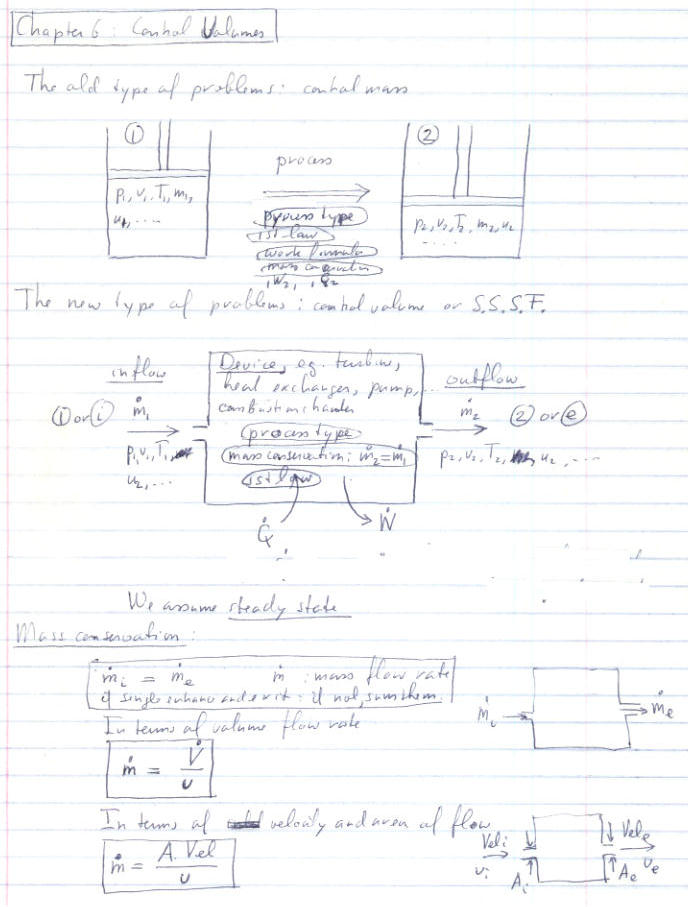 Chapter 6 : Control Volumes
The old type of problems: control mass
① ②
process
P₁, v₁, T₁, m₁,
u₁, ....
process type
1st law
work formula
mass conservation
₁W₂, ₁Q₂
P₂, v₂, T₂, m₂, u₂
.....
The new type of problems : control volume or S.S.S.F.
inflow
① or ⓘ
ṁ₁
P₁ v₁, T₁,
u₂, ...
Device, eg. turbine,
heat exchanger, pump, ...
combustion chamber
process type
mass conservation: ṁ₂ = ṁ₁
1st law
Q̇ Ẇ
outflow
ṁ₂
② or ⓔ
P₂, v₂, T₂, u₂, ...
We assume steady state
Mass conservation :
ṁi = ṁe ṁ : mass flow rate
if single entrance and exit : if not, sum them.
ṁi ṁe
In terms of volume flow rate
ṁ = V̇ / v
In terms of velocity and area of flow
ṁ = A. Vel / v
Veli
vi
Ai
Vele
ve
Ae